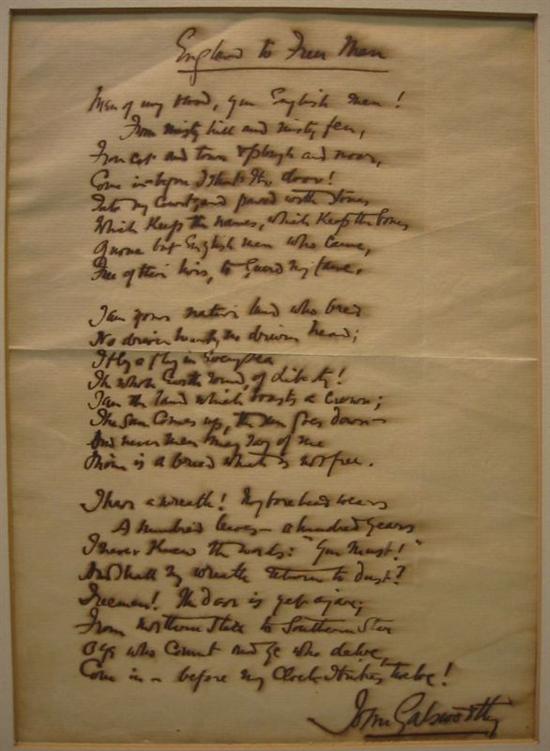 England to Free Men
Men of my blood, you English men!
From misty hill and misty fen,
From cot and town & plough and moor,
Come in — before I shut the door!
Into my courtyard paved with stones
Which keep the names, which keep the bones
Of none but English men who came,
Free of their lives, to guard my fame.
I am your native land who bred
No driven heart, no driven head;
I fly a flag in every sea
The whole Earth round, of Liberty!
I am the land which boasts a Crown;
The sun comes up, the sun goes down —
And never men may say of me
Mine is a breed which is not free.
I have a wreath! My forehead wears
A hundred leaves — a hundred years
I never knew the words: "You must!"
And shall my wreath return to dust?
Freemen! The door is yet ajar;
From northern star to southern star
O ye who count and ye who delve,
Come in — before my clock strikes twelve!
John Galsworthy